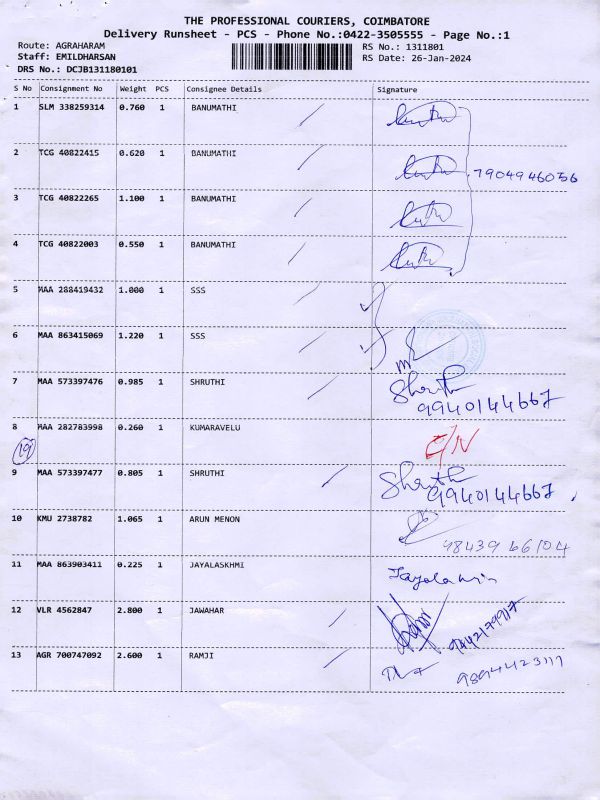 THE PROFESSIONAL COURIERS, COIMBATORE
Delivery Runsheet - PCS - Phone No.:0422-3505555 - Page No.:1
Route: AGRAHARAM RS No.: 1311801
Staff: EMILDHARSAN RS Date: 26-Jan-2024
DRS No.: DCJB131180101
S No Consignment No Weight PCS Consignee Details Signature
1 SLM 338259314 0.760 1 BANUMATHI
2 TCG 40822415 0.620 1 BANUMATHI 7904946056
3 TCG 40822265 1.100 1 BANUMATHI
4 TCG 40822003 0.550 1 BANUMATHI
5 MAA 288419432 1.000 1 SSS
6 MAA 863415069 1.220 1 SSS
7 MAA 573397476 0.985 1 SHRUTHI Shruthi
9940144667
8 MAA 282783998 0.260 1 KUMARAVELU
19
9 MAA 573397477 0.805 1 SHRUTHI Shruthi
9940144667
10 KMU 2738782 1.065 1 ARUN MENON
98439 66104
11 MAA 863903411 0.225 1 JAYALASKHMI
12 VLR 4562847 2.800 1 JAWAHAR
13 AGR 700747092 2.600 1 RAMJI